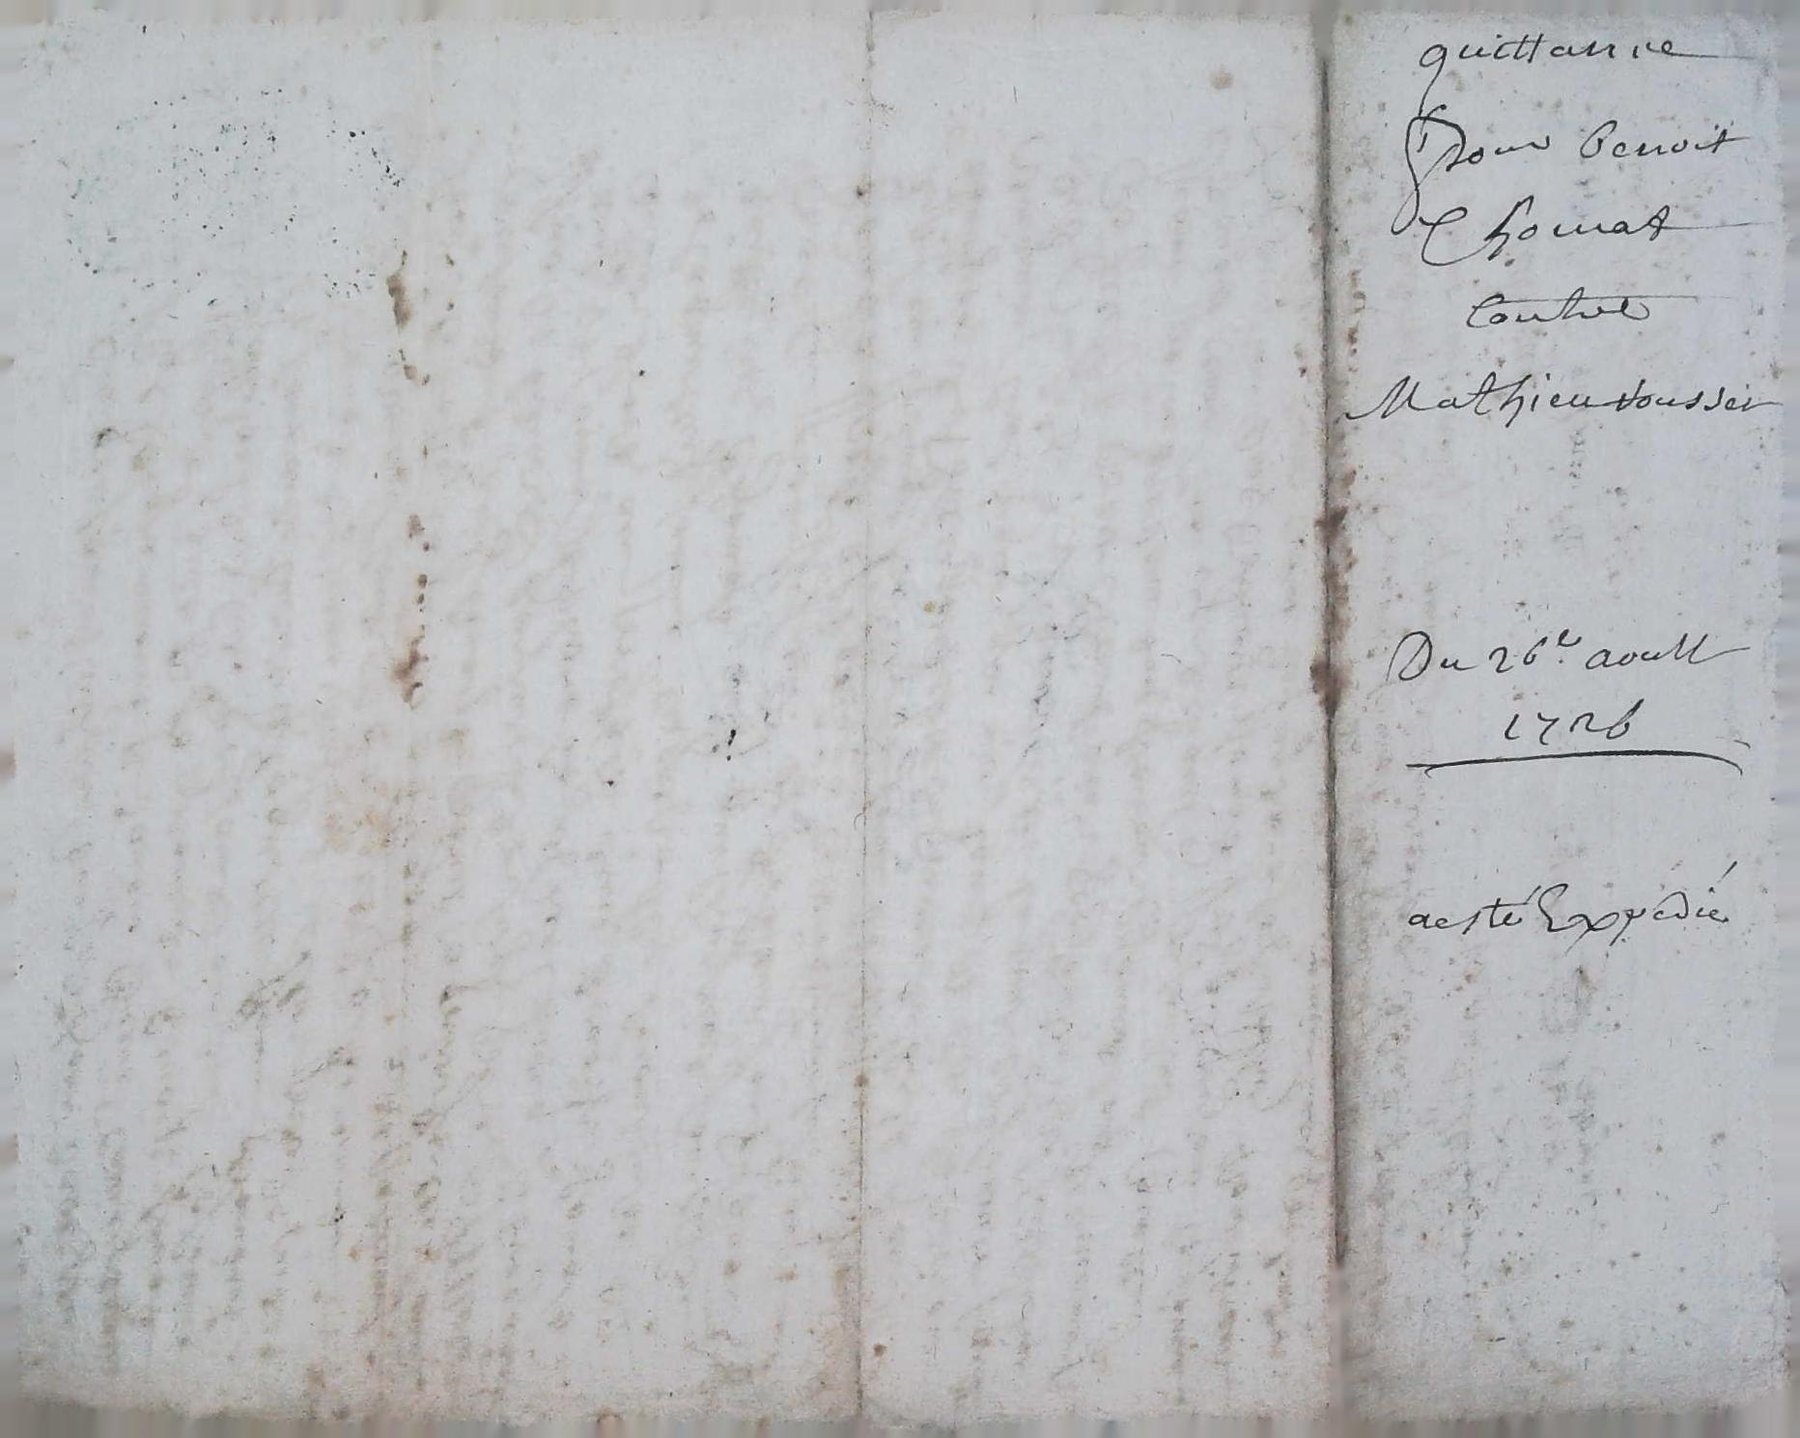 quittance
pour benoit
Chomat
Contre
Mathieu rousset
Du 26e. aoust
1726
a esté Expédié